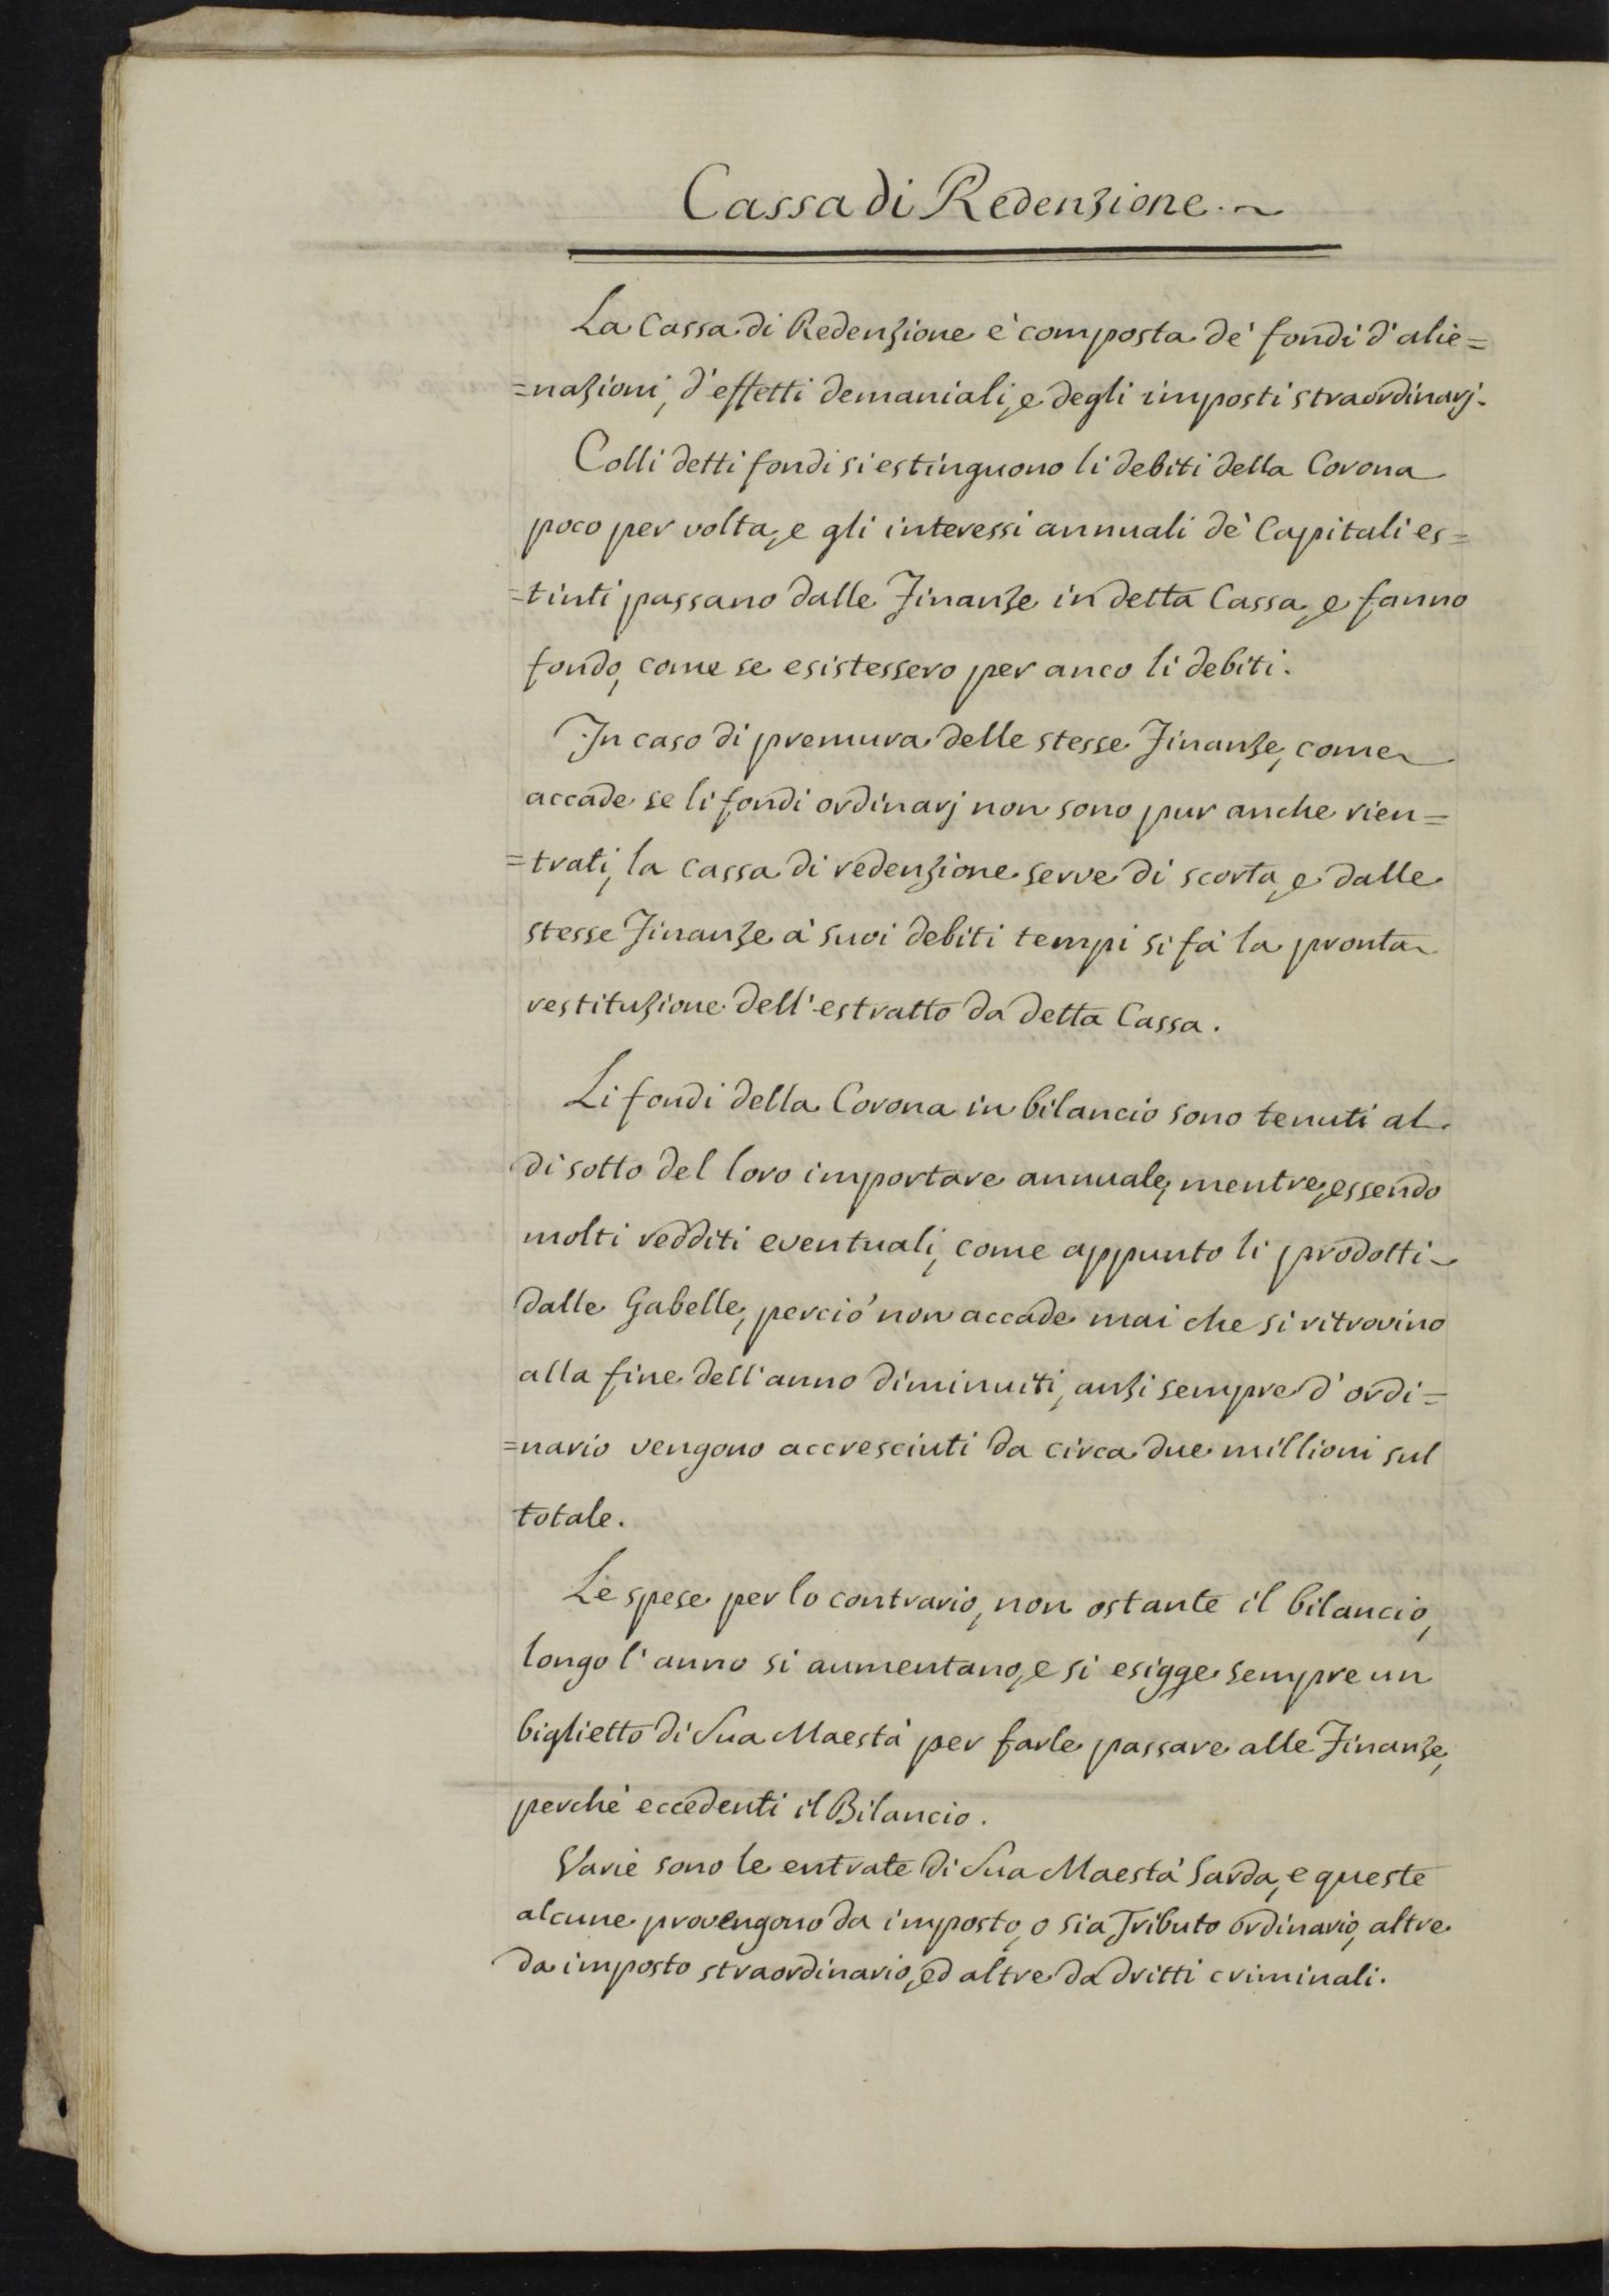 Cassa di Redenzione. ~
La Cassa di Redenzione è composta de' fondi d'alie=
=nazioni, d'effetti demaniali, e degli imposti straordinarj.
Colli detti fondi si estinguono li debiti della Corona
poco per volta, e gli interessi annuali de' Capitali es=
=tinti passano dalle Finanze in detta Cassa, e fanno
fondo, come se esistessero per anco li debiti.
In caso di premura delle stesse Finanze, come
accade se li fondi ordinarj non sono pur anche rien=
=trati, la cassa di redenzione serve di scorta, e dalle
stesse Finanze a' suoi debiti tempi si fà la pronta
restituzione dell'estratto da detta Cassa.
Li fondi della Corona in bilancio sono tenuti al
di sotto del loro importare annuale, mentre, essendo
molti redditi eventuali, come appunto li prodotti
dalle Gabelle, perciò non accade mai che si ritrovino
alla fine dell'anno diminuiti, anzi sempre d'ordi=
=nario vengono accresciuti da circa due millioni sul
totale.
Le spese per lo contrario, non ostante il bilancio,
longo l'anno si aumentano, e si esigge sempre un
biglietto di Sua Maestà per farle passare alle Finanze,
perchè eccedenti il Bilancio.
Varie sono le entrate di Sua Maestà Sarda, e queste
alcune provengono da imposto, o sia Tributo ordinario, altre
da imposto straordinario, ed altre da dritti criminali.